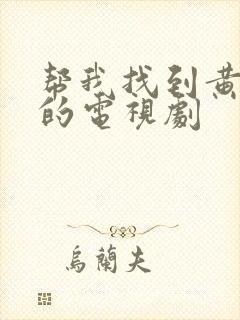 帮我找到黄
的電視劇
烏蘭夫